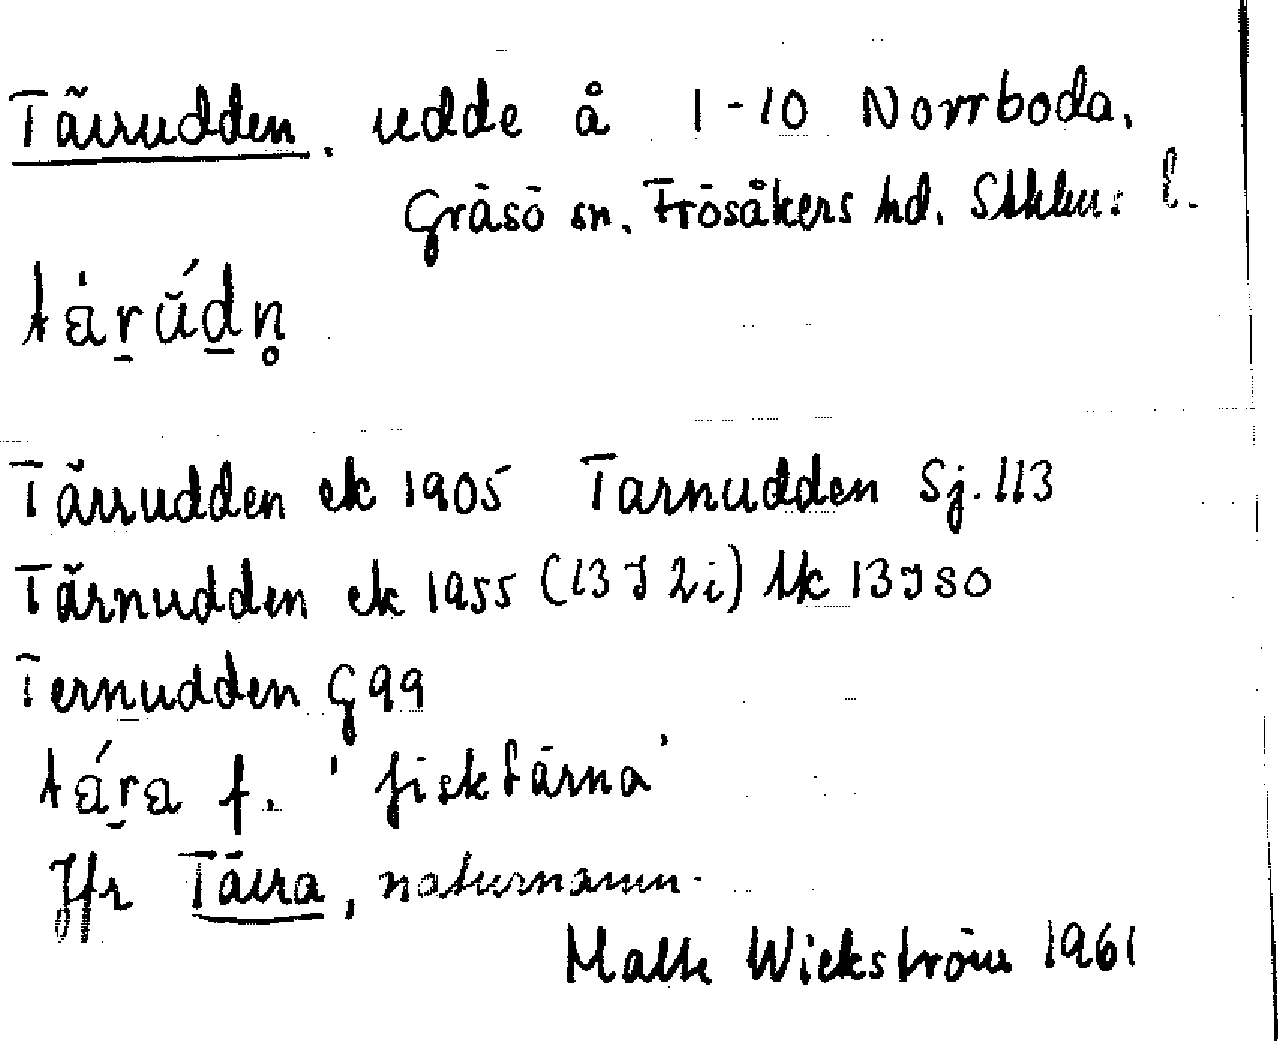 Tärrudden. udde å 1-10 Norrboda.
Gräsö sn. Frösåkers hd. Sthlms l.
tárŭ́dn̥
Tärrudden ek 1905 Tarnudden Sj. 113
Tärnudden ek 1955 (13 J 2i) tk 13J SO
Ternudden G 99
tára f. 'fisktärna'
Jfr Tärra, naturnamn.
Malte Wickström 1961